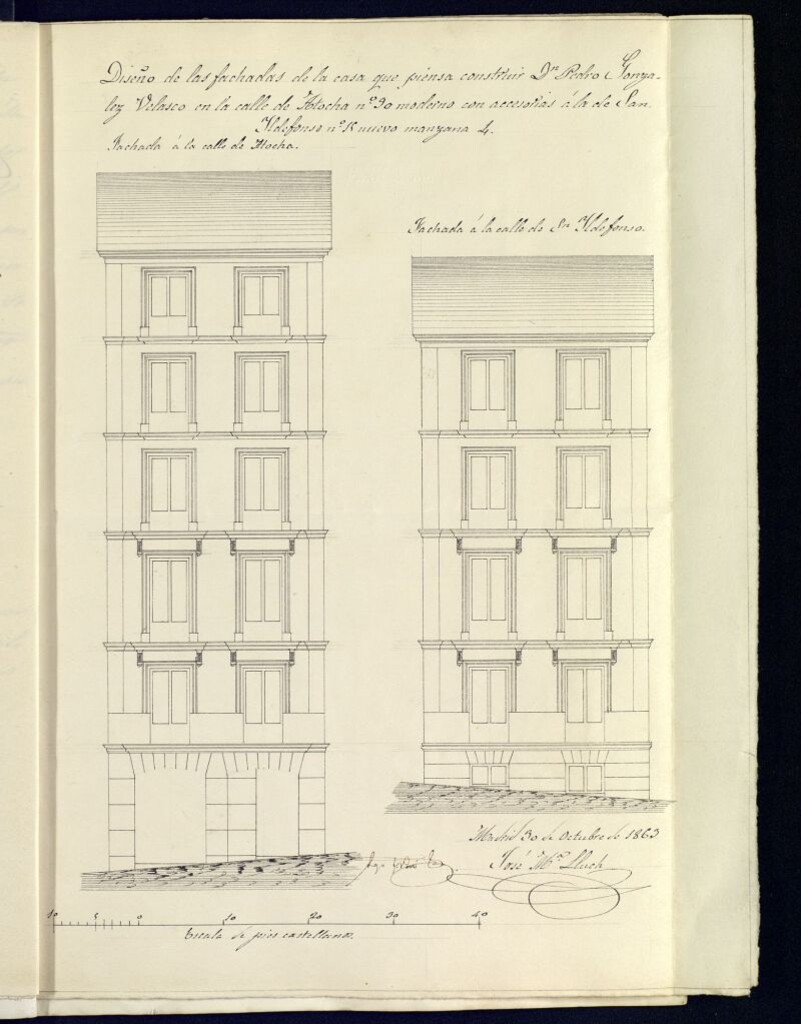 Diseño de las fachadas de la casa que piensa construir Dⁿ Pedro Gonza-
lez Velasco en la calle de Atocha nº 90 moderno con accesorias á la de San
Ildefonso nº nuevo manzana 4.
Fachada á la calle de Atocha.
Fachada á la calle de Sⁿ Ildefonso.
Madrid 30 de Octubre de 1863
José Mª Lluch
10 5 0 10 20 30 40
Escala de pies castellanos.